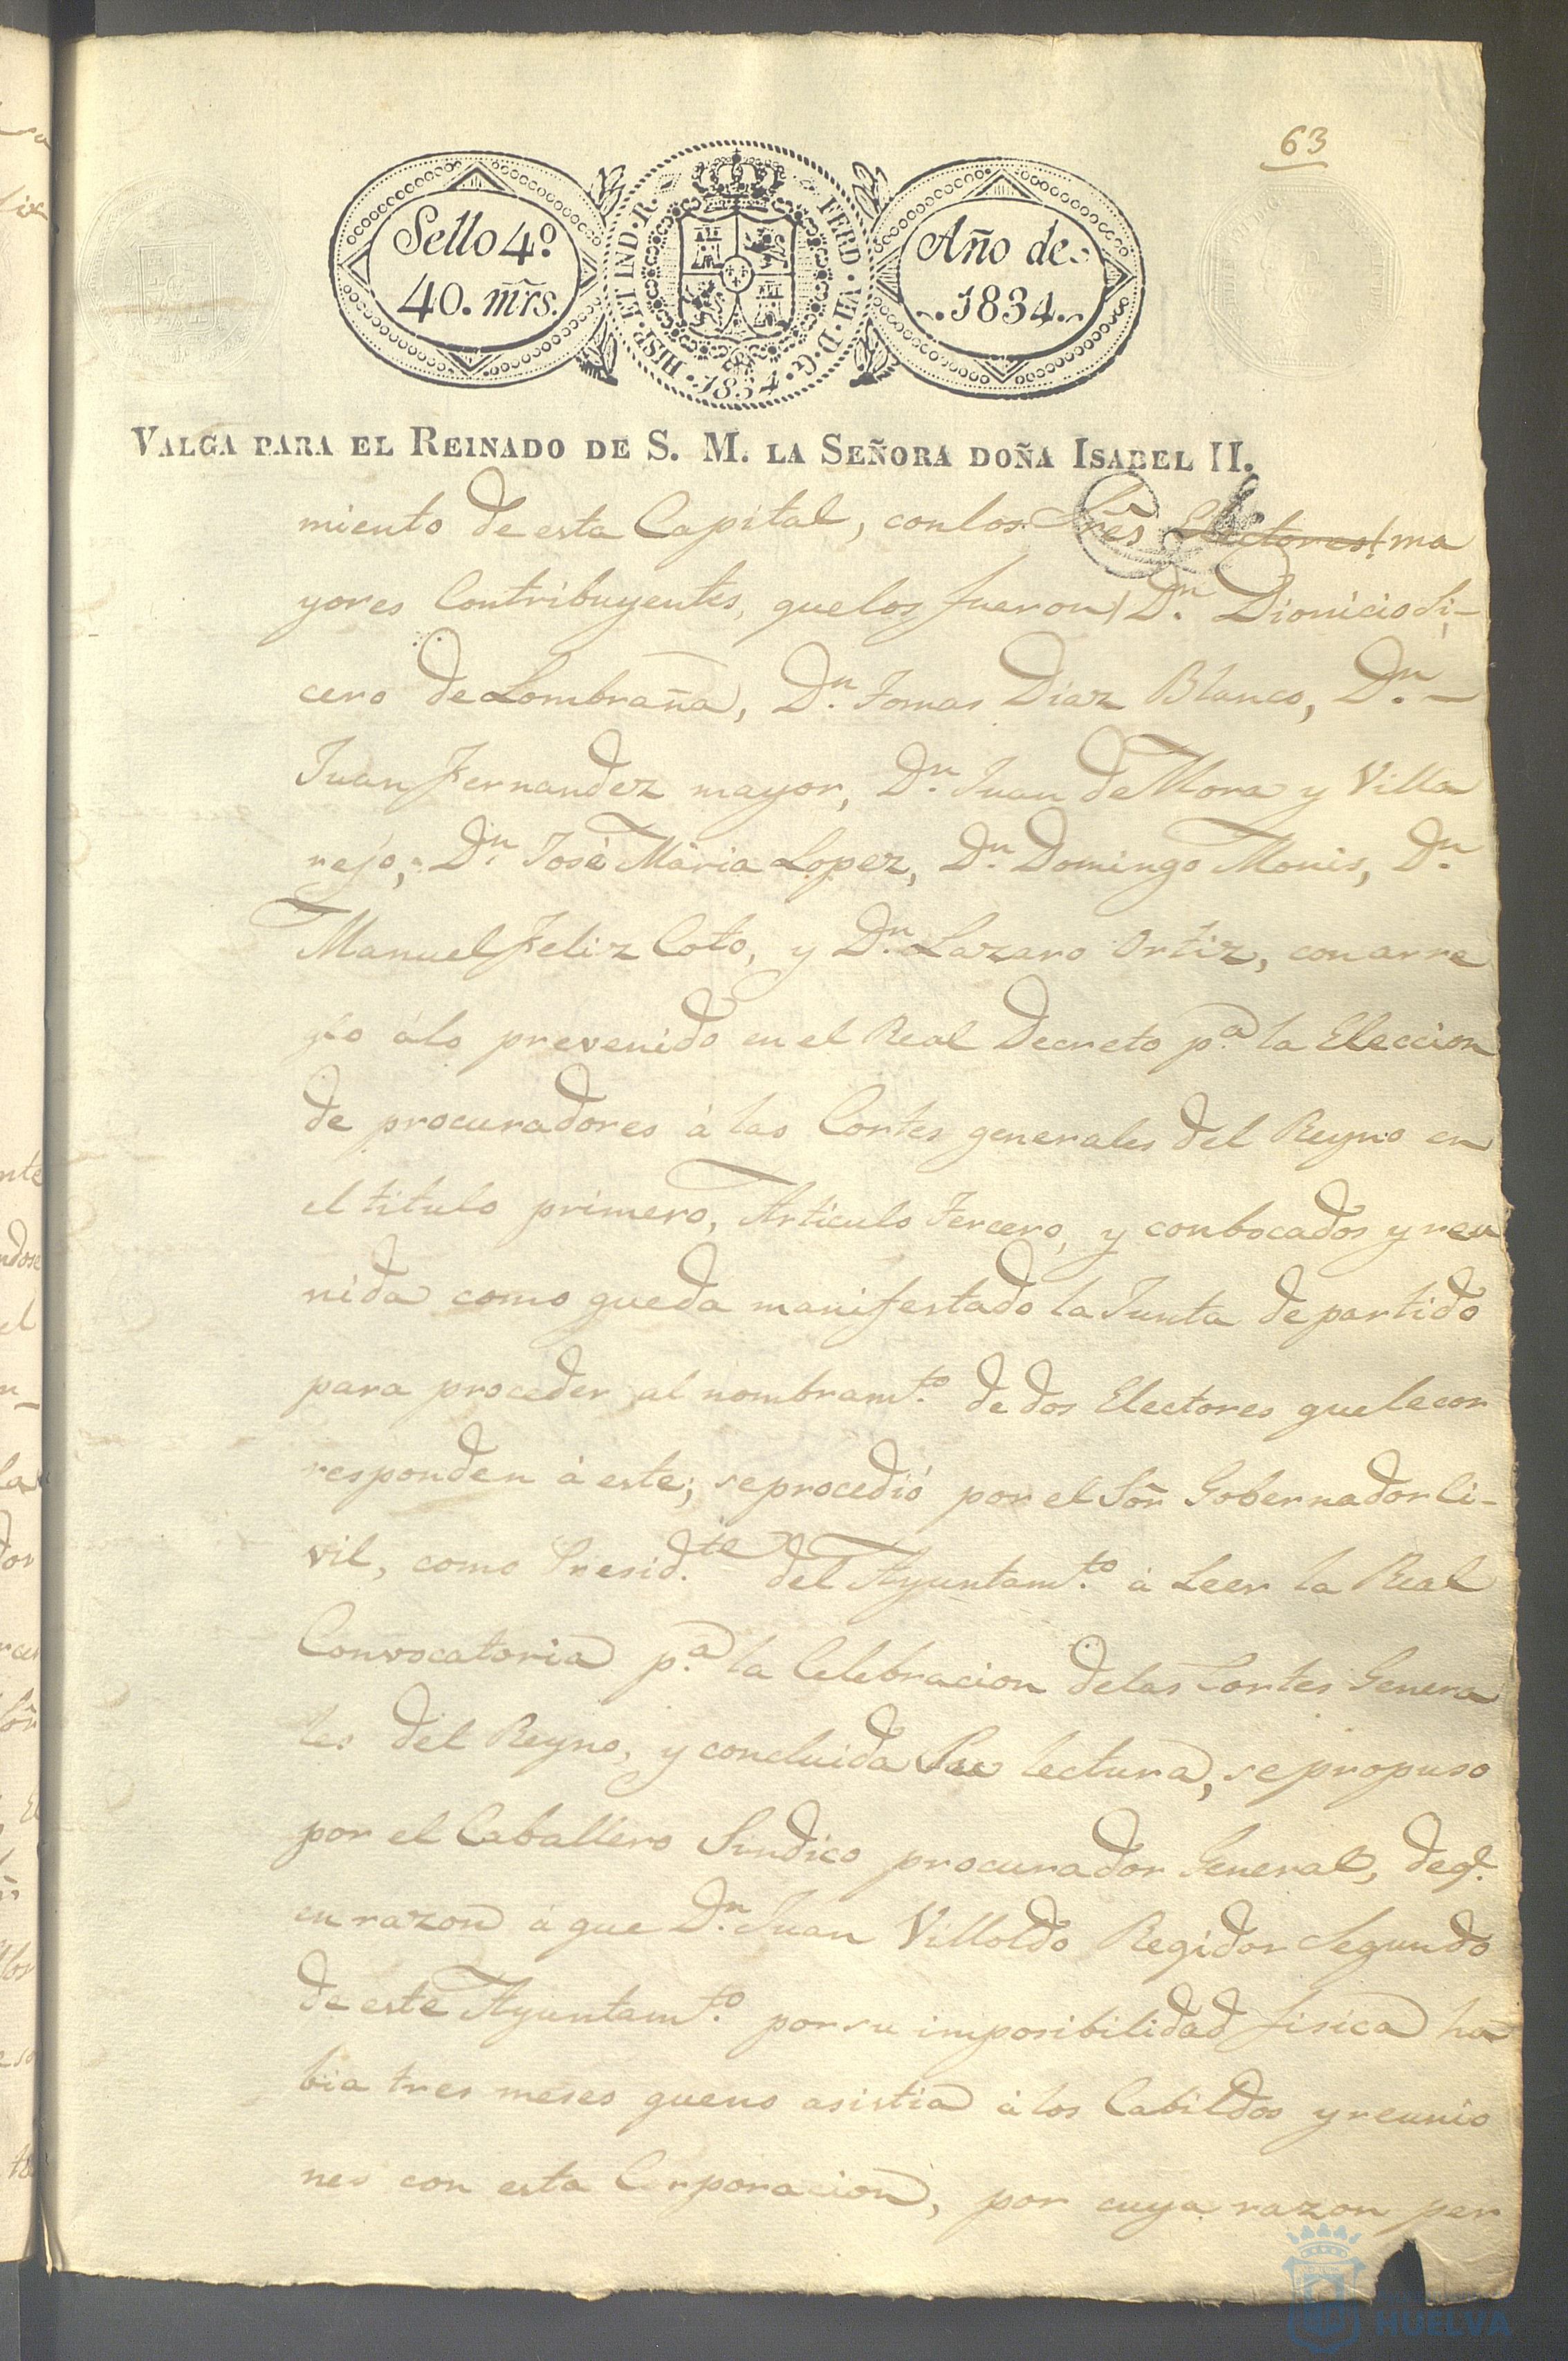 63
Sello 4º
40. mrs.
HISP. ET IND. R. FERD. VII. D. G. 1834
Año de
1834.
VALGA PARA EL REINADO DE S. M. LA SEÑORA DOÑA ISABEL II.
miento de esta Capital, con los Sres Electores ma
yores Contribuyentes, que los fueron Dn. Dionicio Si-
cero de Lombraña, Dn. Tomas Diaz Blanco, Dn. -
Juan Fernandez mayor, Dn. Juan de Mora y Villa
rejo, Dn. José Maria Lopez, Dn. Domingo Monis, Dn.
Manuel Feliz Coto, y Dn. Lazaro Ortiz, con arre
glo álo prevenido en el Real Decreto pa. la Eleccion
de procuradores á las Cortes generales del Reyno en
el titulo primero, Articulo Tercero, y conbocados y reu
nida como queda manifestado la Junta de partido
para proceder al nombramto. de dos Electores que le cor
responden á este; se procedió por el Sor Gobernador Ci-
vil, como Presidte. del Ayuntamto. á Leer la Real
Convocatoria pa. la Celebracion delas Cortes Genera
les del Reyno, y concluida Su lectura, se propuso
por el Caballero Sindico procurador General, deqe.
en razon á que Dn. Juan Villoldo Regidor Segundo
de este Ayuntamto. por su imposibilidad fisica ha
bia tres meses que no asistia á los Cabildos y reunio
nes con esta Corporacion, por cuya razon per
HUELVA